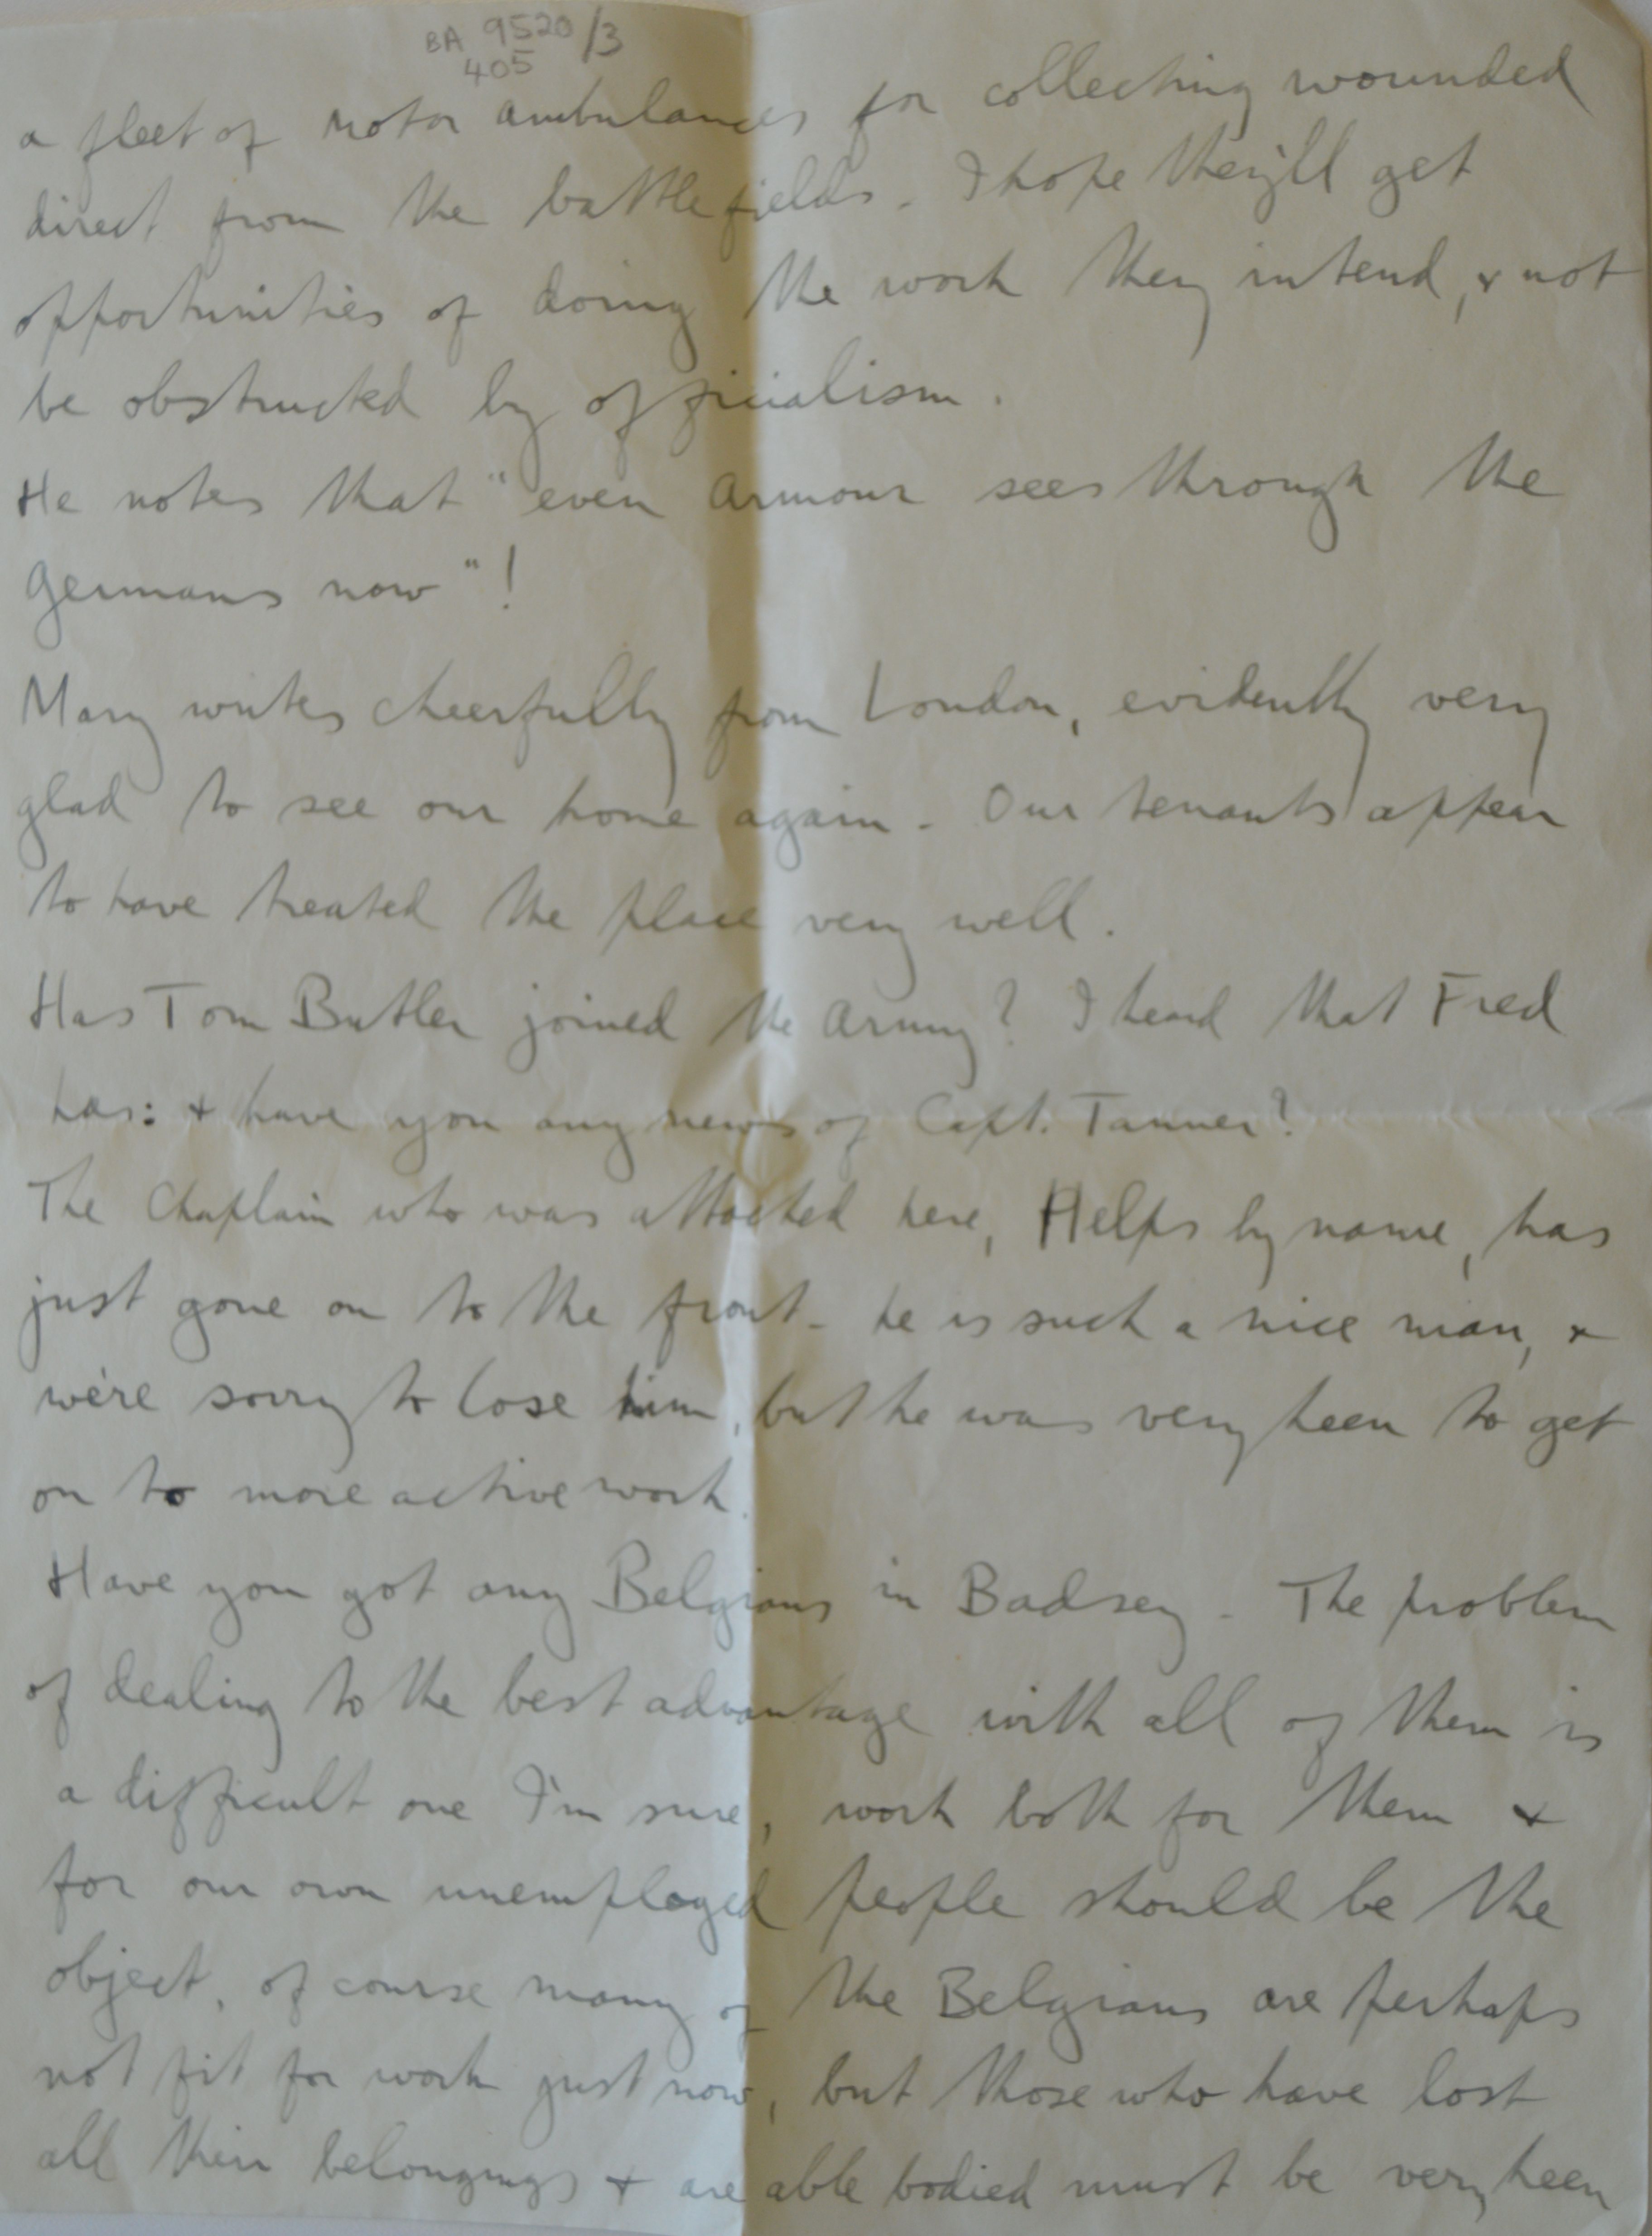 BA 9520/3
405
a fleet of motor ambulances for collecting wounded
direct from the battlefields. I hope they'll get
opportunities of doing the work they intend, & not
be obstructed by officialism.
He notes that "even Armour sees through the
Germans now"!
Mary writes cheerfully from London, evidently very
glad to see our home again. Our tenants appear
to have treated the place very well.
Has Tom Butler joined the Army? I heard that Fred
has: & have you any news of Capt. Tanner?
The Chaplain who was attached here, Helps by name, has
just gone on to the front. he is such a nice man, &
we're sorry to lose him, but he was very keen to get
on to more active work.
Have you got any Belgians in Badsey. The problem
of dealing to the best advantage with all of them is
a difficult one I'm sure, work both for them &
for our own unemployed people should be the
object, of course many of the Belgians are perhaps
not fit for work just now, but those who have lost
all their belongings & are able bodied must be very keen